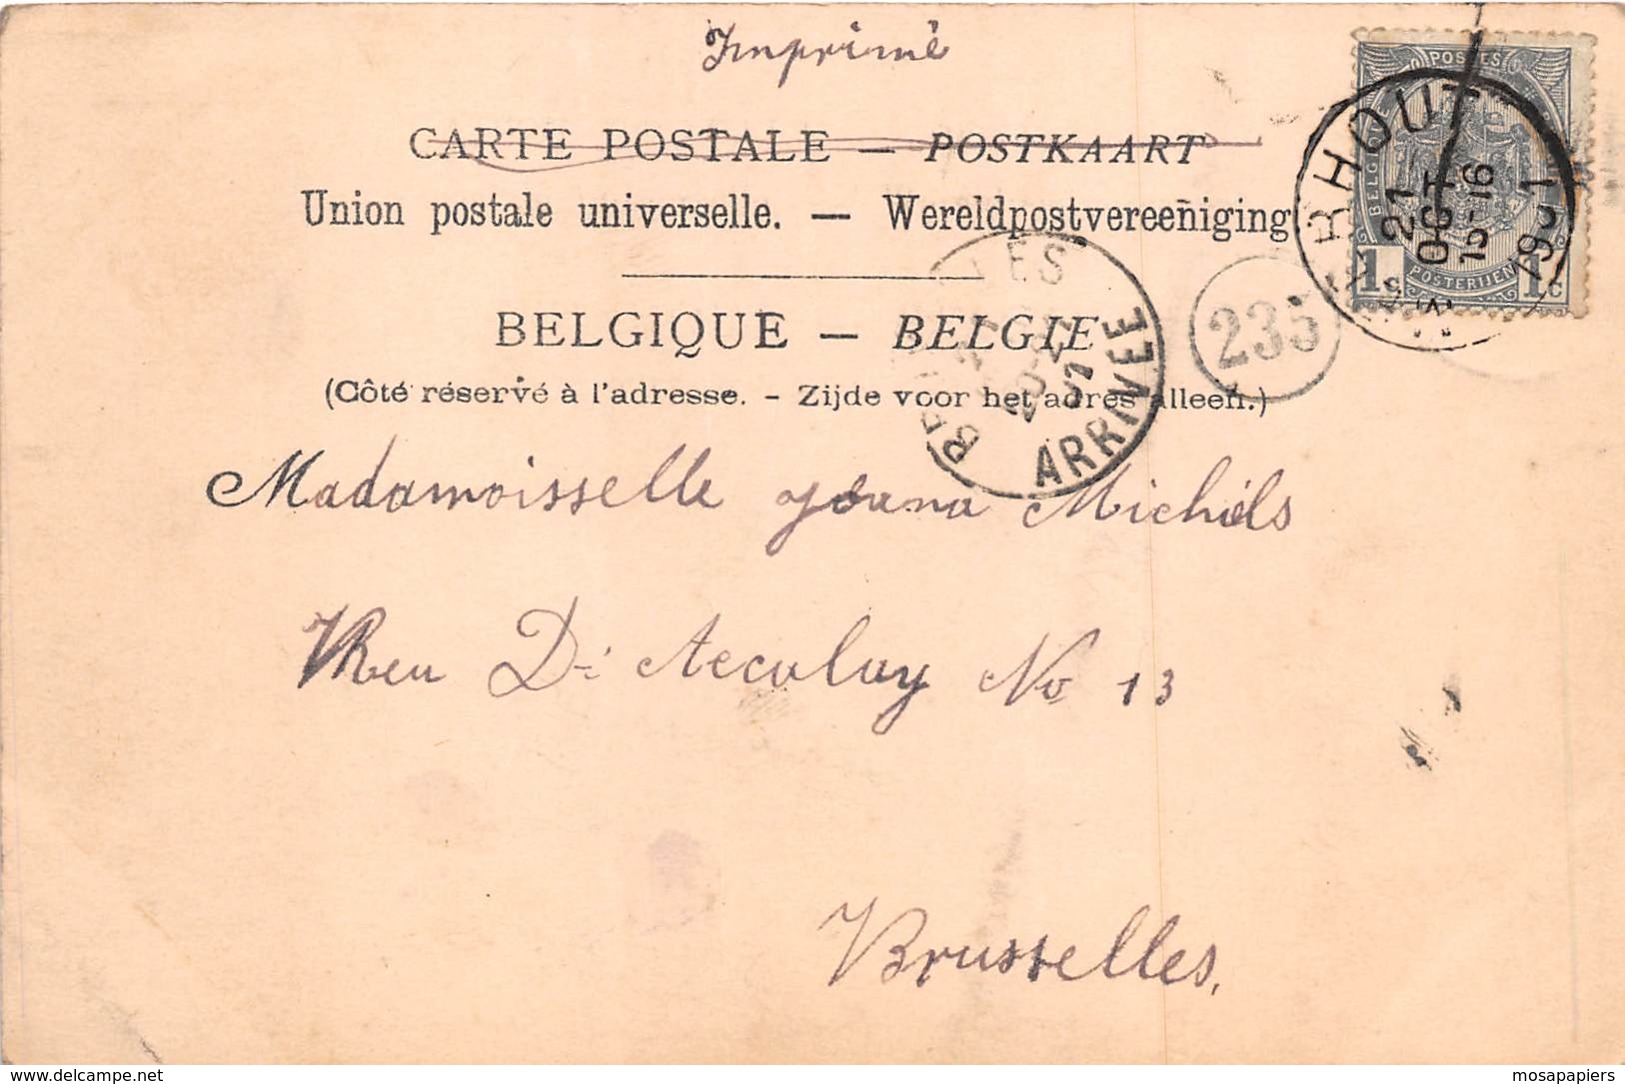 Imprimé
CARTE POSTALE — POSTKAART
Union postale universelle. — Wereldpostvereeniging
BELGIQUE — BELGIE
(Côté réservé à l'adresse. - Zijde voor het adres alleen.)
POSTES
BELGIQUE
1 1 c
POSTERIJEN
RHOUT
21
OCT
15-16
1901
235
ARRIVEE
Madamoisselle Joana Michiels
Reu No 13
Brusselles,
delcampe.net
mosapapiers